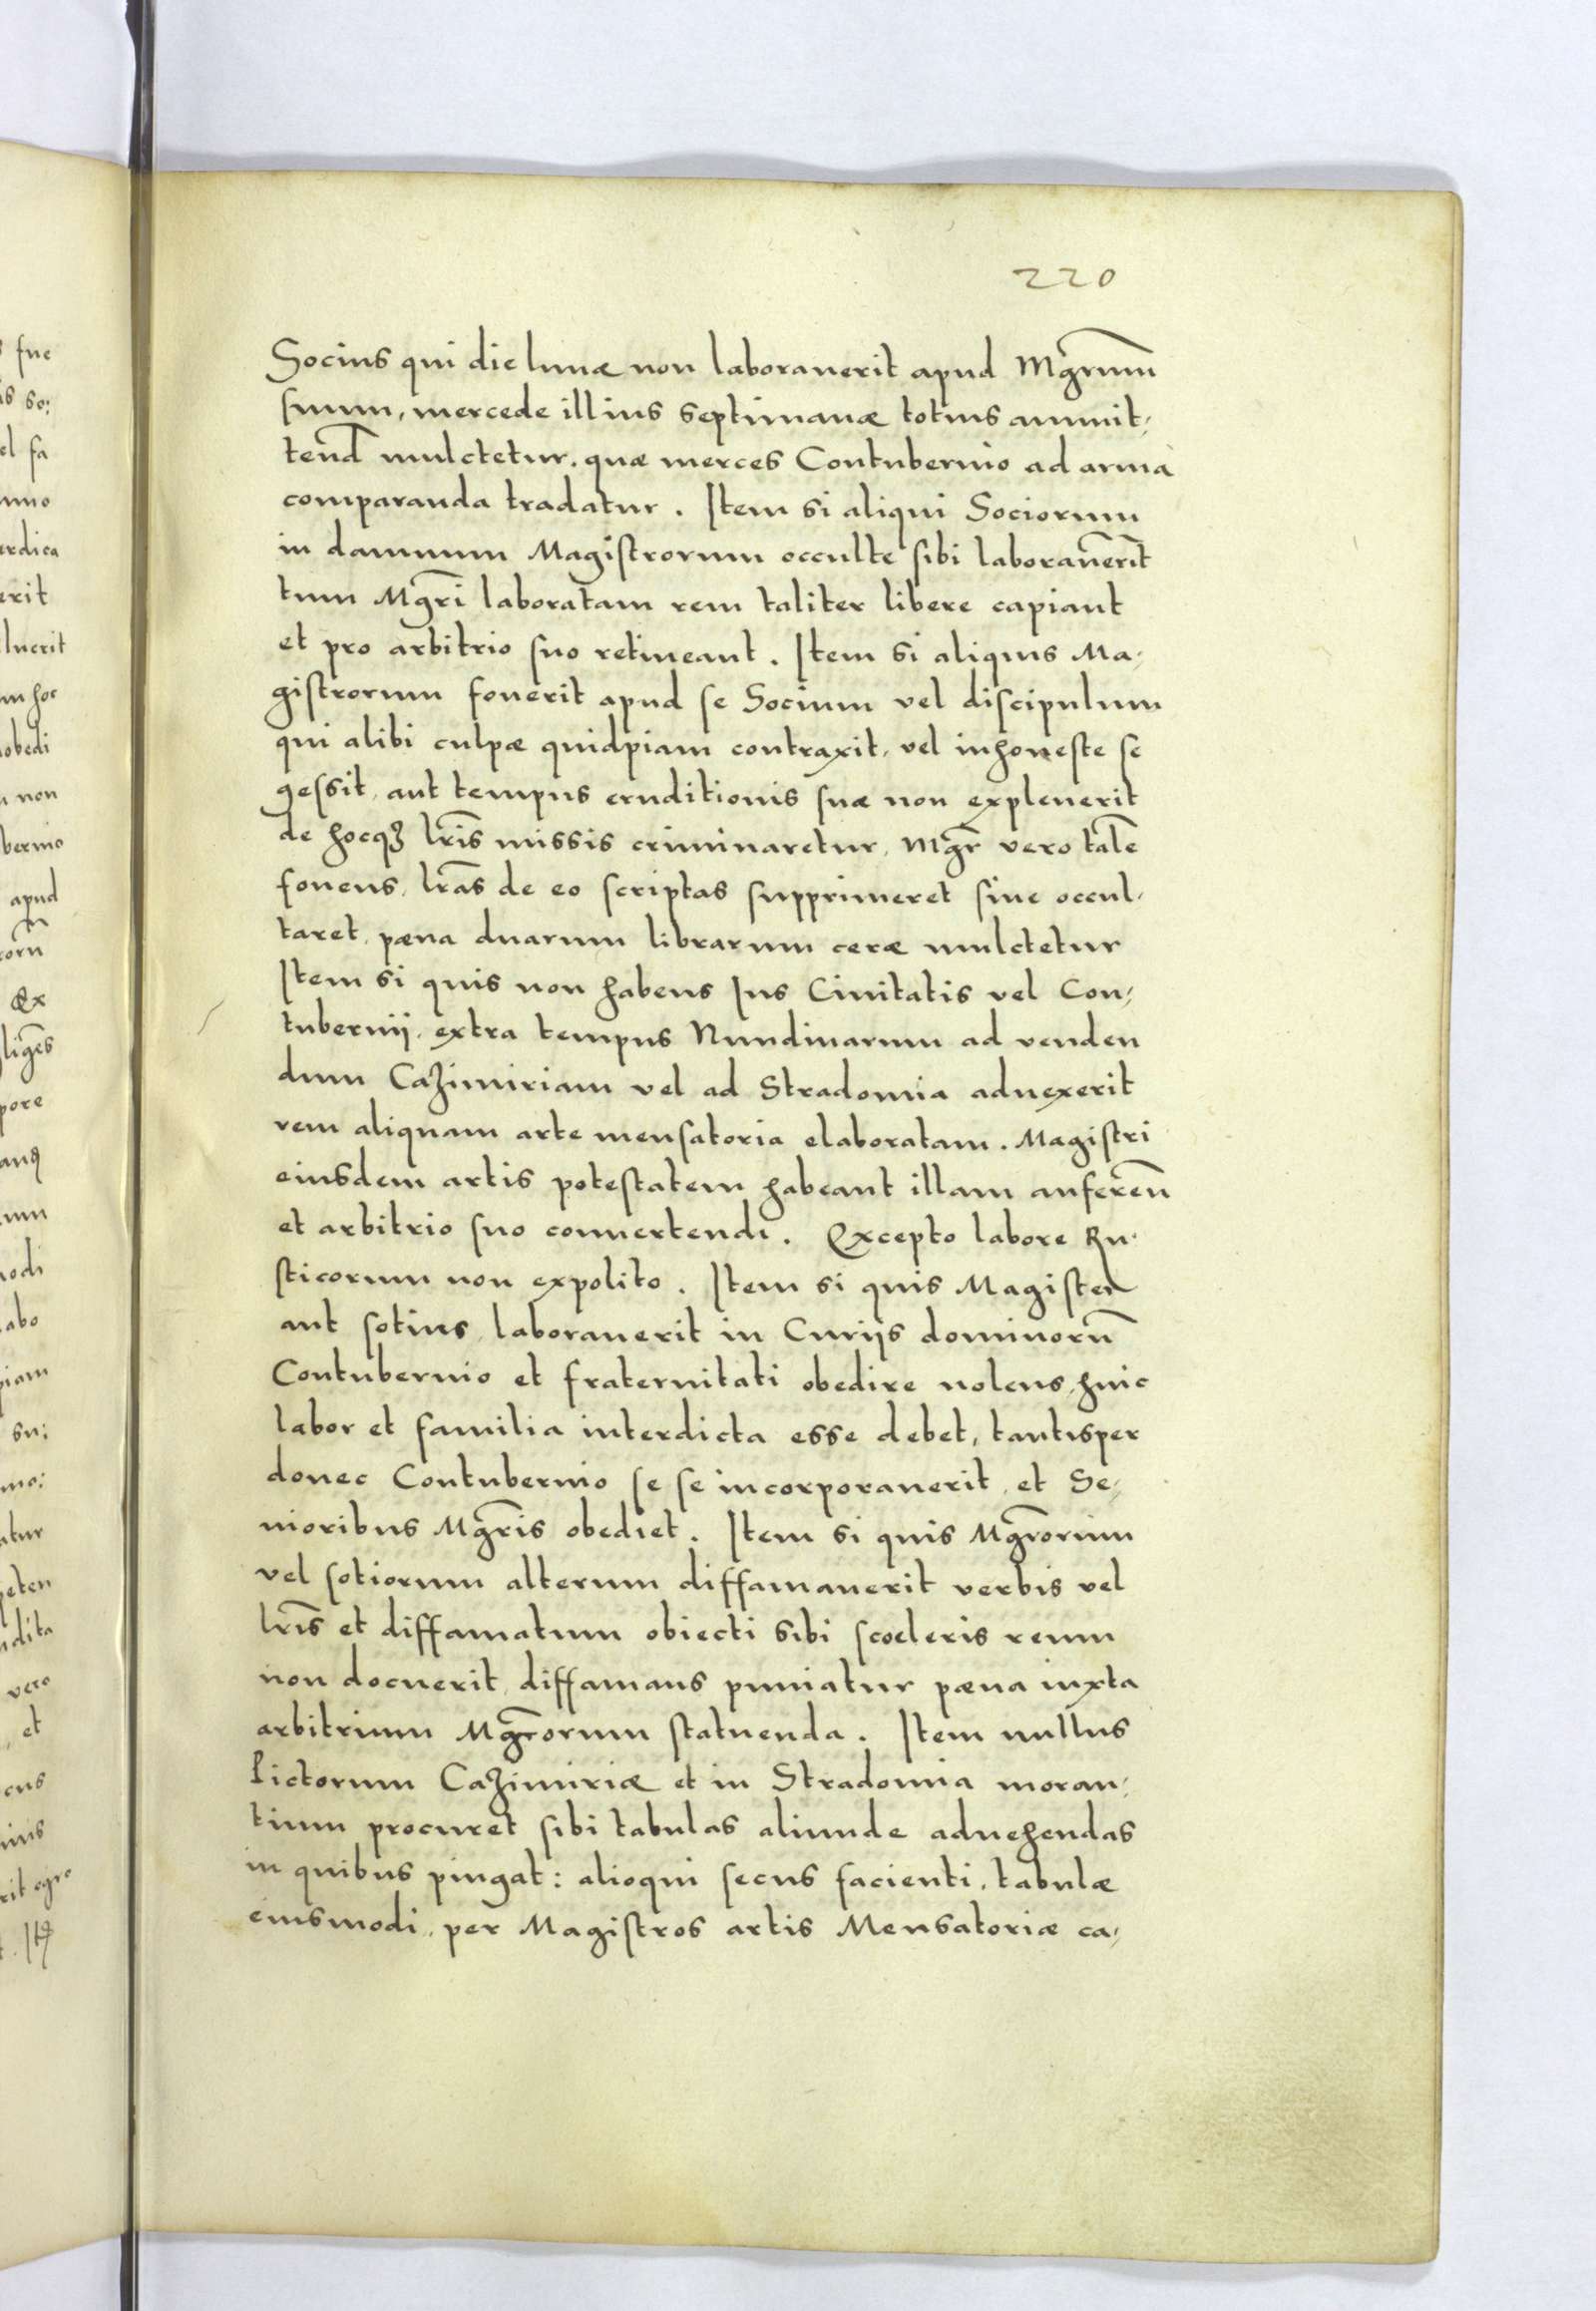 220
Socius qui die lunæ non laborauerit apud Mgr̃um
suum, mercede illius septimanæ totius ammit,
tend̃ mulctetur. quæ merces Contubernio ad arma
comparanda tradatur. Item si aliqui Sociorum
in damnum Magistrorum occulte sibi laborauer̃it
tum Mgr̃i laboratam rem taliter libere capiant
et pro arbitrio suo retineant. Item si aliquis Ma,
gistrorum fouerit apud se Socium vel discipulum
qui alibi culpæ quidpiam contraxit, vel inhoneste se
gessit, aut tempus eruditionis suæ non expleuerit
de hocqꝫ lr̃is missis criminaretur, Mgr̃ vero tal̃e
fouens, lr̃as de eo scriptas supprimeret siue occul,
taret, pæna duarum librarum ceræ mulctetur
Item si quis non habens Ius Ciuitatis vel Con,
tubernij, extra tempus Nundinarum ad venden
dum Cazimiriam vel ad Stradomia aduexerit
rem aliquam arte mensatoria elaboratam. Magistri
eiusdem artis potestatem habeant illam auferen̄
et arbitrio suo conuertendi. Excepto labore Ru,
sticorum non expolito. Item si quis Magister
aut sotius, laborauerit in Curijs dominorū
Contubernio et fraternitati obedire nolens, huic
labor et familia interdicta esse debet, tantisper
donec Contubernio se se incorporauerit, et Se,
nioribus Mgr̃is obediet. Item si quis Mgr̃orum
vel sotiorum alterum diffamauerit verbis vel
lr̃is et diffamatum obiecti sibi scœleris reum
non docuerit, diffamans puniatur pæna iuxta
arbitrium Mgr̃orum statuenda. Item nullus
Pictorum Cazimiriæ et in Stradomia moran,
tium procuret sibi tabulas aliunde aduehendas
in quibus pingat: alioqui secus facienti, tabulæ
eiusmodi, per Magistros artis Mensatoriæ ca,